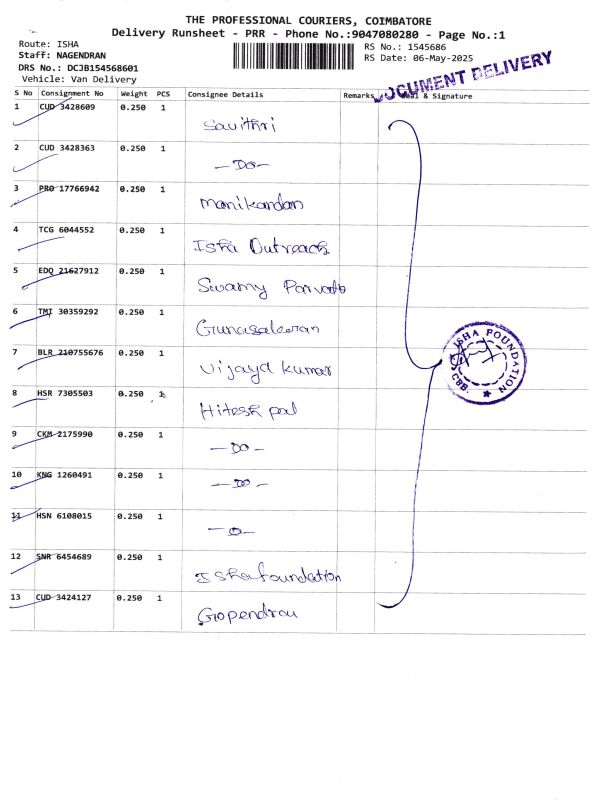 THE PROFESSIONAL COURIERS, COIMBATORE
Delivery Runsheet - PRR - Phone No.:9047080280 - Page No.:1
Route: ISHA
Staff: NAGENDRAN
DRS No.: DCJB154568601
Vehicle: Van Delivery
RS No.: 1545686
RS Date: 06-May-2025
DOCUMENT DELIVERY
S No Consignment No Weight PCS Consignee Details Remarks & Signature
1 CUD 3428609 0.250 1 Savithri
2 CUD 3428363 0.250 1 -Do-
3 PRO 17766942 0.250 1 Manikandan
4 TCG 6044552 0.250 1 Isha Outreach
5 EDQ 21627912 0.250 1 Swamy
6 TMI 30359292 0.250 1 Gunasekaran
7 BLR 210755676 0.250 1 Vijaya Kumar
8 HSR 7305503 0.250 1 Hitesh pal
9 CKM 2175990 0.250 1 -Do-
10 KNG 1260491 0.250 1 -Do-
11 HSN 6108015 0.250 1
12 SNR 6454689 0.250 1 Isha foundation
13 CUD 3424127 0.250 1 Gopendran
ISHA FOUNDATION
CBE.